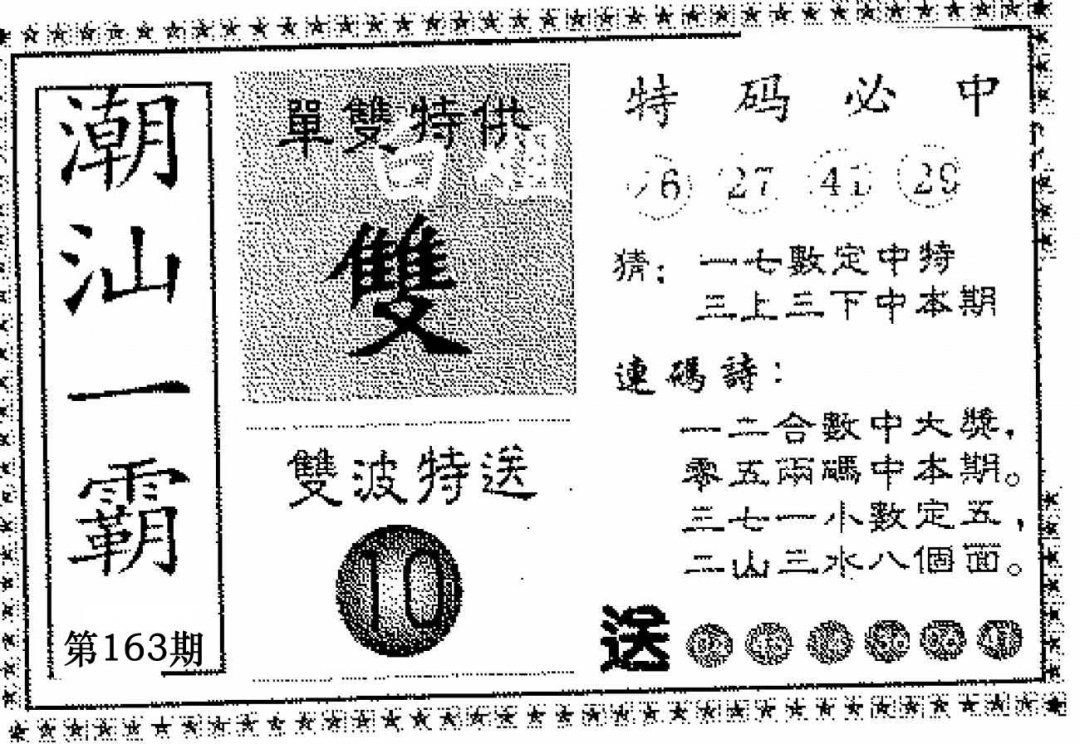 潮汕一霸
第163期
單雙特供
白姐
雙
雙波特送
10
特码必中
27 41 29
猜：一七數定中特
三上三下中本期
連碼詩：
一二合數中大獎，
零五兩碼中本期。
三七一小數定五，
二山三水八個面。
送